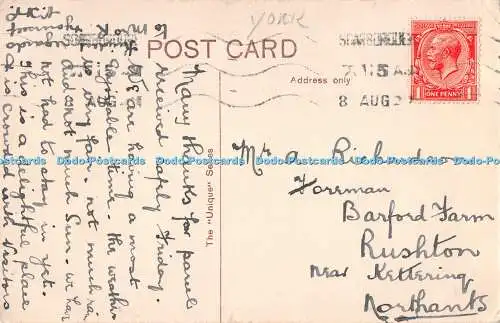 YORK
POST CARD
Address only
SCARBOROUGH
7.15 A
8 AUG 2
ONE PENNY
Many thanks for parcel
received safely Friday.
We are having a most
Enjoyable time. the weather
is very fair. not much rain
and not much Sun. we have
not had to stay in yet.
This is a delightful place
& is crowded with visitors
The "Unique" Series
Mr A Richardson
Foreman
Barford Farm
Rushton
Near Kettering
Northants
Dodo-Postcards Dodo-Postcards Dodo-Postcards Dodo-Postcards